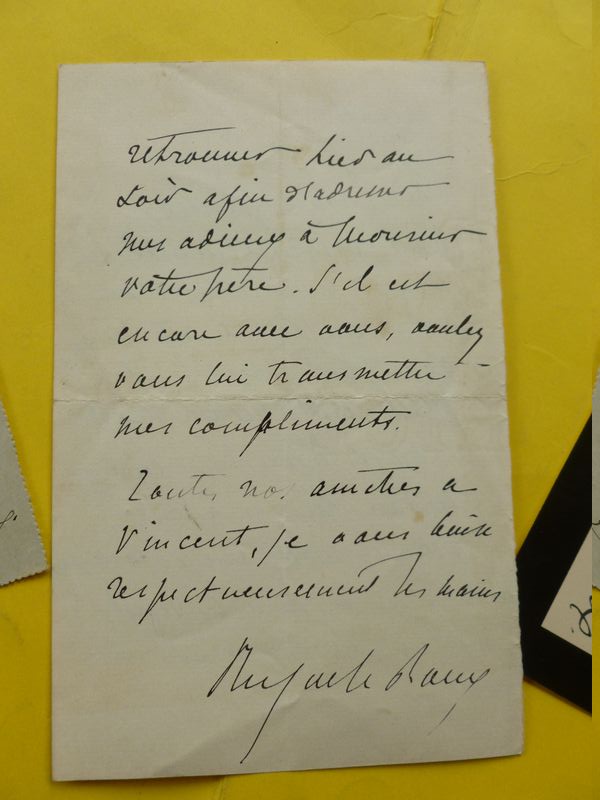 retrouver hier au
soir afin d'adresser
mes adieux à Monsieur
votre père. S'il est
encore avec vous, voulez
vous lui transmettre
mes compliments.
Toutes nos amitiés à
Vincent, je vous baise
respectueusement les mains
Hugues Le Roux